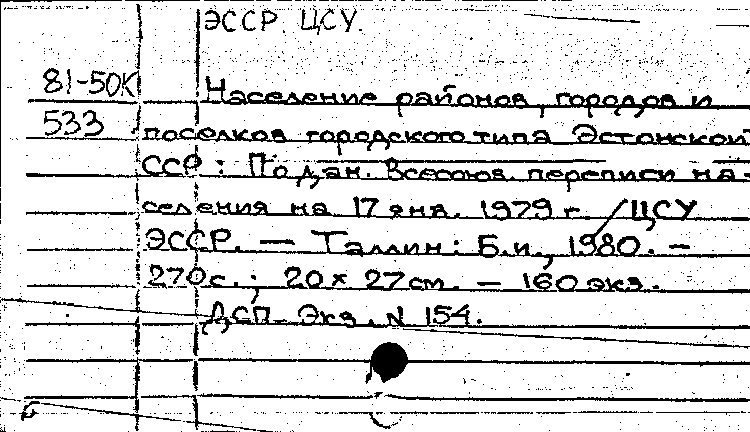 ЭССР. ЦСУ.
81-50К Население районов, городов и
533 поселков городского типа Эстонской
ССР: По дан. Всесоюз. переписи на-
селения на 17 янв. 1979 г. / ЦСУ
ЭССР. — Таллин: Б.и., 1980. –
270с.; 20 × 27см. – 160 экз.
ДСП – Экз. N 154.